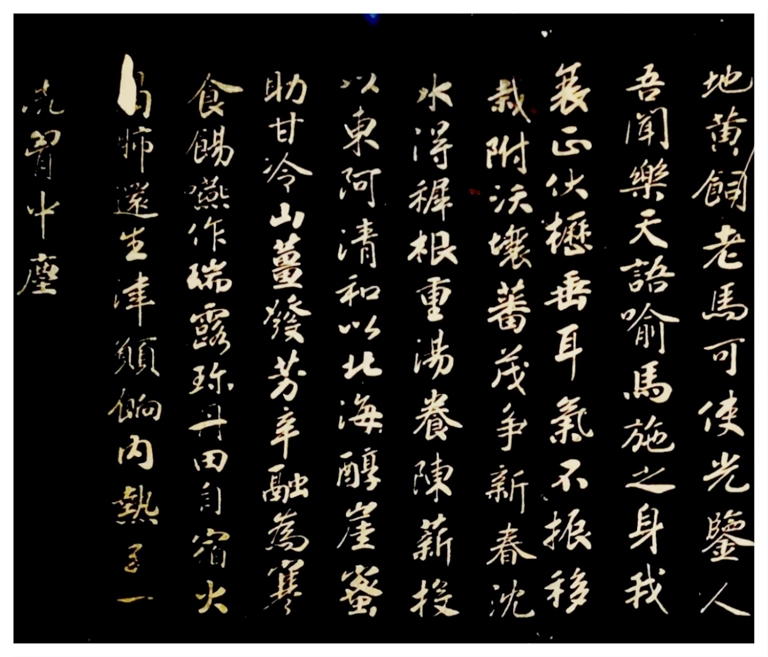 地黄飼老馬可使光鑒人
吾聞樂天語喻馬施之身我
衰正伏櫪垂耳氣不振移
栽附沃壤蕃茂争新春沈
水得穉根重湯養陳薪投
以東阿清和以北海醇崖蜜
助甘冷山薑發芳辛融為寒
食餳嚥作瑞露珎丹田自宿火
渴肺還生津願餉内熱子一
洗胃中塵